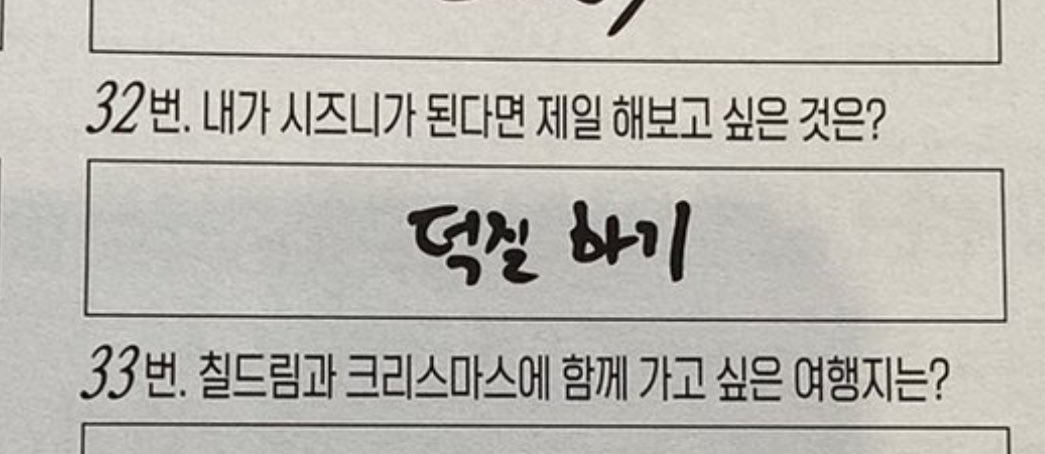 32번. 내가 시즈니가 된다면 제일 해보고 싶은 것은?
덕질 하기
33번. 칠드림과 크리스마스에 함께 가고 싶은 여행지는?